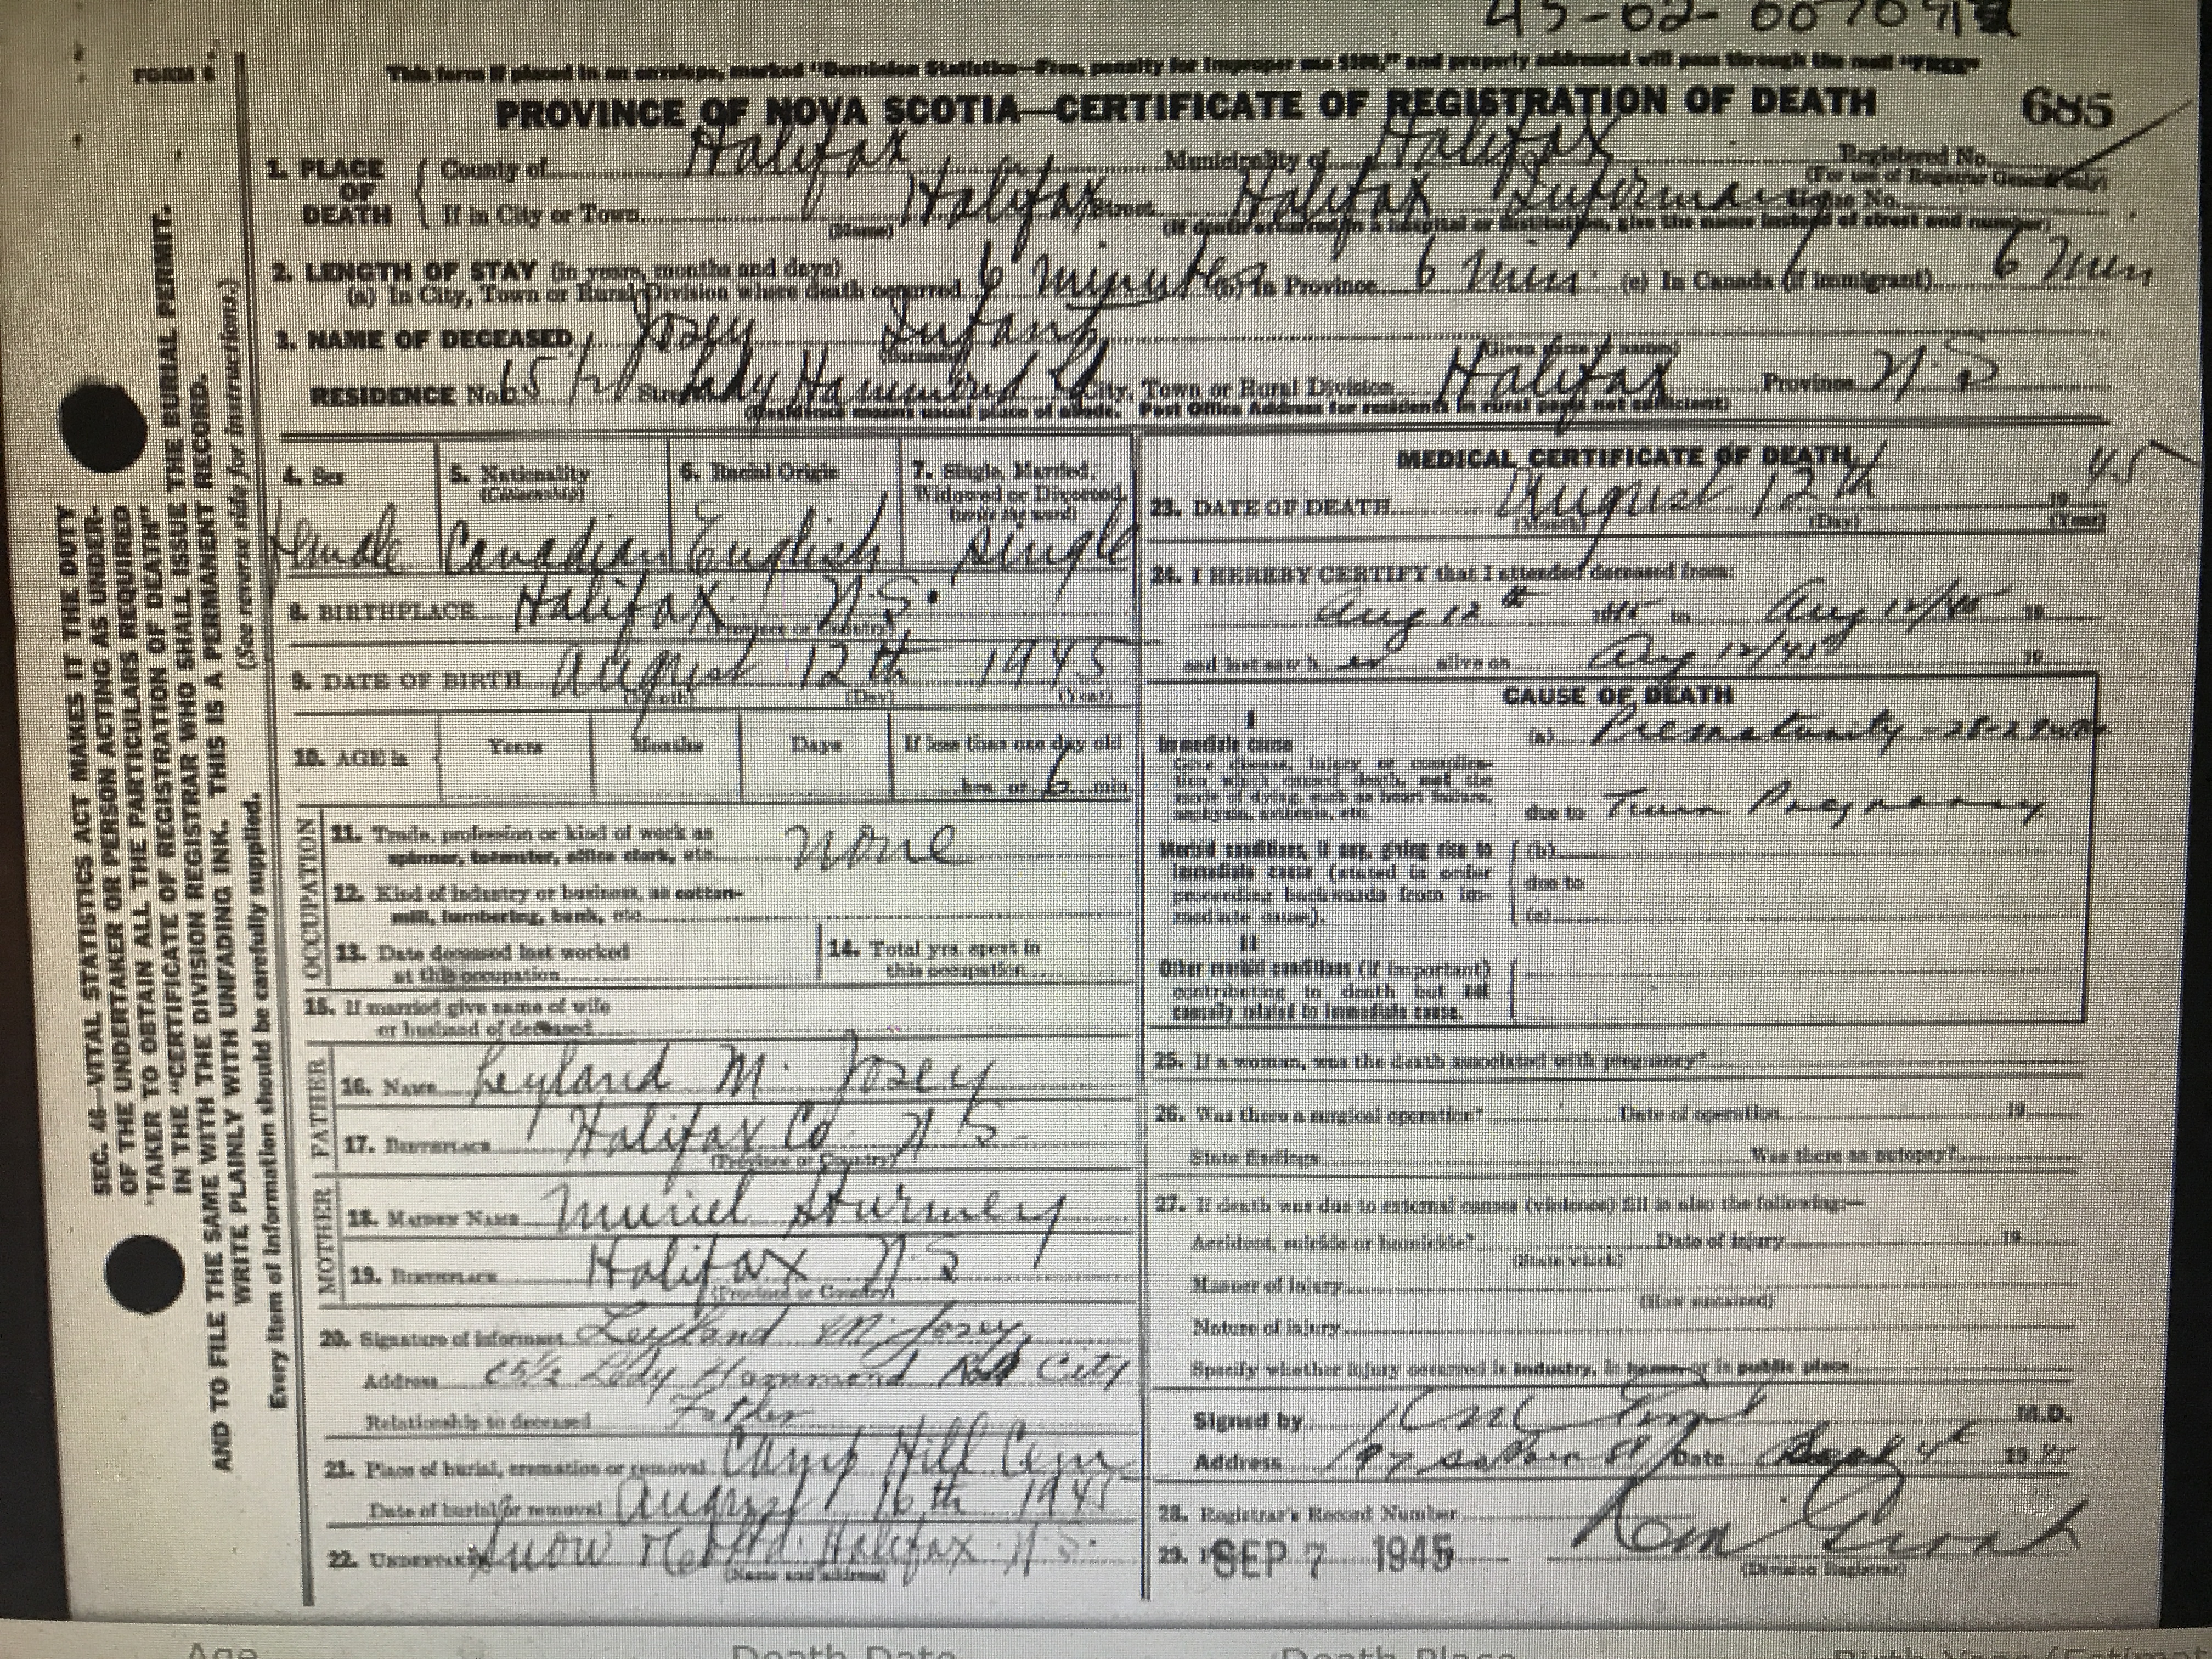 45-02-00707
FORM 6
This form if placed in an envelope, marked "Dominion Statistics—Free, penalty for improper use $300," and properly addressed will pass through the mail "FREE"
PROVINCE OF NOVA SCOTIA—CERTIFICATE OF REGISTRATION OF DEATH 685
1. PLACE OF DEATH
County of Halifax Municipality of Halifax Registered No.
(For use of Registrar General only)
If in City or Town Halifax Street Halifax Infirmary No.
(Name) (If death occurred in a hospital or institution, give the name instead of street and number)
2. LENGTH OF STAY (in years, months and days)
(a) In City, Town or Rural Division where death occurred 6 minutes (b) In Province 6 min. (c) In Canada (if immigrant) 6 min
3. NAME OF DECEASED Josey Infant
(Surname) (Given name or names)
RESIDENCE No. 65 1/2 Street Lady Hammond Rd City, Town or Rural Division Halifax Province N.S
(Residence means usual place of abode. Post Office Address for residents in rural parts not sufficient)
4. Sex
Female
5. Nationality
(Citizenship)
Canadian
6. Racial Origin
English
7. Single, Married, Widowed or Divorced
(write the word)
single
8. BIRTHPLACE Halifax N.S.
(Province or Country)
9. DATE OF BIRTH August 12th 1945
(Month) (Day) (Year)
10. AGE in Years Months Days If less than one day old
hrs. or 6 min.
OCCUPATION
11. Trade, profession or kind of work as
spinner, teamster, office clerk, etc. none
12. Kind of industry or business, as cotton-
mill, lumbering, bank, etc.
13. Date deceased last worked
at this occupation
14. Total yrs. spent in
this occupation
15. If married give name of wife
or husband of deceased
FATHER
16. NAME Leyland M. Josey
17. BIRTHPLACE Halifax Co. N.S.
(Province or Country)
MOTHER
18. MAIDEN NAME Muriel Sturmey
19. BIRTHPLACE Halifax N.S
(Province or Country)
20. Signature of informant Leyland M. Josey
Address 65 1/2 Lady Hammond Rd City
Relationship to deceased Father
21. Place of burial, cremation or removal Camp Hill Cem
Date of burial or removal August 16th 1945
22. UNDERTAKER Snow & Co Ltd. Halifax N.S.
(Name and address)
MEDICAL CERTIFICATE OF DEATH
23. DATE OF DEATH August 12th 1945
(Month) (Day) (Year)
24. I HEREBY CERTIFY that I attended deceased from:
Aug 12th 1945 to Aug 12/45 19
and last saw h er alive on Aug 12/45 19
CAUSE OF DEATH
I
Immediate cause
Give disease, injury or complica-
tion which caused death, not the
mode of dying, such as heart failure,
asphyxia, asthenia, etc.
(a) Prematurity - 28-29 wks
due to Twin Pregnancy
Morbid conditions, if any, giving rise to
immediate cause (stated in order
proceeding backwards from im-
mediate cause).
(b)
due to
(c)
II
Other morbid conditions (if important)
contributing to death but not
causally related to immediate cause.
25. If a woman, was the death associated with pregnancy?
26. Was there a surgical operation? Date of operation 19
State findings Was there an autopsy?
27. If death was due to external causes (violence) fill in also the following:—
Accident, suicide or homicide? Date of injury 19
(State which)
Manner of injury
(How sustained)
Nature of injury
Specify whether injury occurred in industry, in home, or in public place
Signed by M.D.
Address 197 St Date Sept 4th 1945
28. Registrar's Record Number
29. SEP 7 1945
(Division Registrar)
SEC. 46—VITAL STATISTICS ACT MAKES IT THE DUTY
OF THE UNDERTAKER OR PERSON ACTING AS UNDER-
TAKER TO OBTAIN ALL THE PARTICULARS REQUIRED
IN THE "CERTIFICATE OF REGISTRATION OF DEATH"
AND TO FILE THE SAME WITH THE DIVISION REGISTRAR WHO SHALL ISSUE THE BURIAL PERMIT.
WRITE PLAINLY WITH UNFADING INK. THIS IS A PERMANENT RECORD.
Every item of information should be carefully supplied. (See reverse side for instructions.)
Age Death Date Death Place